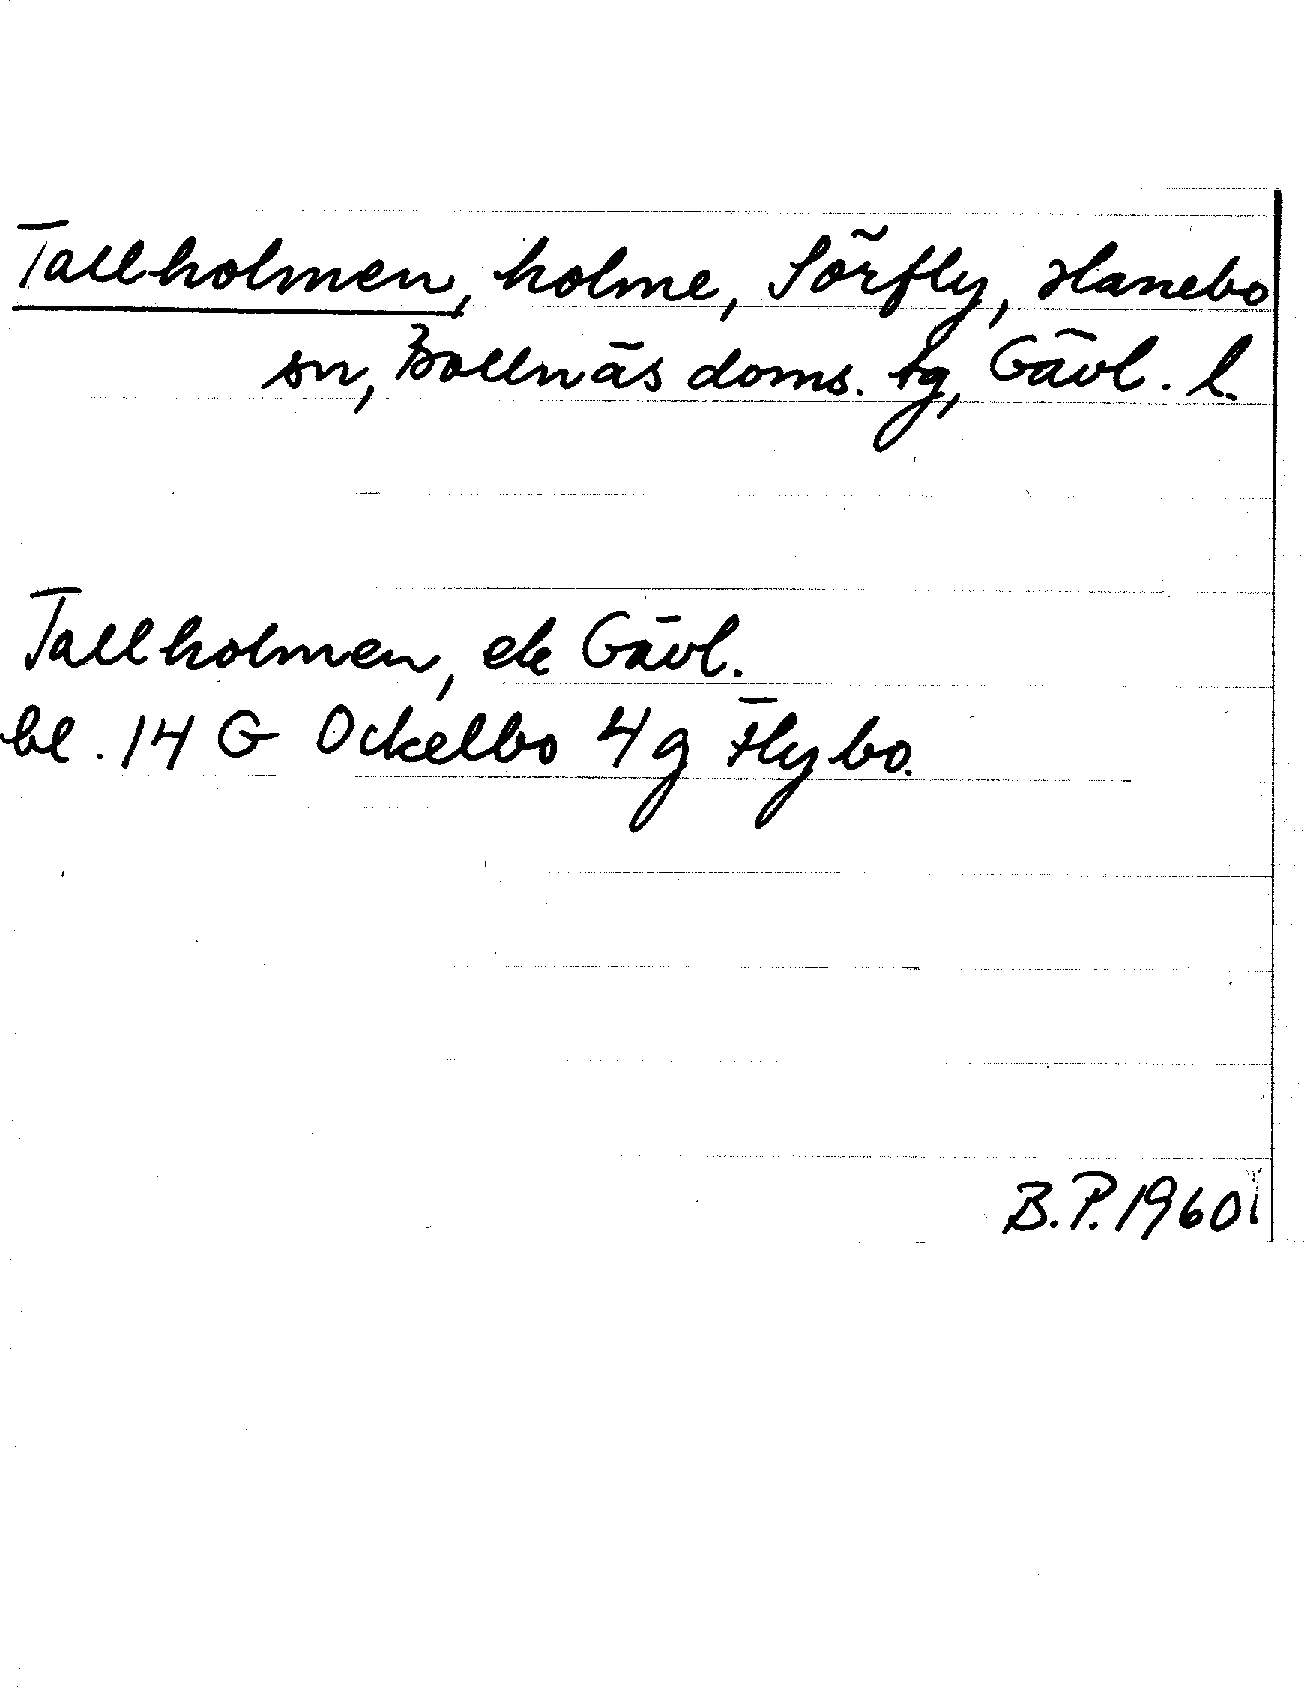 Tallholmen, holme, Sörfly, Hanebo
sn, Bollnäs doms. tg, Gävl. l.
Tallholmen, ek Gävl.
bl. 14 G Ockelbo 4g Flybo.
B.P. 1960